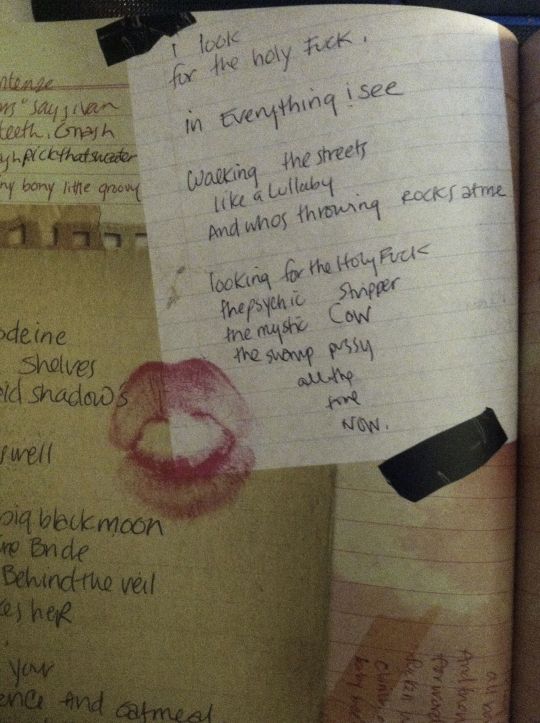 i look
for the holy Fuck.
in Everything i see
Walking the streets
like a Lullaby
And whos throwing ROCKS at me
looking for the Holy Fuck
the psychic stripper
the mystic Cow
the swamp pussy
all the
time
NOW.
say ivan
teeth. Gnash
pick that sweater
bony little groovy
odeine
Shelves
shadows
swell
big black moon
Bride
Behind the veil
her
your
ence And oatmeal